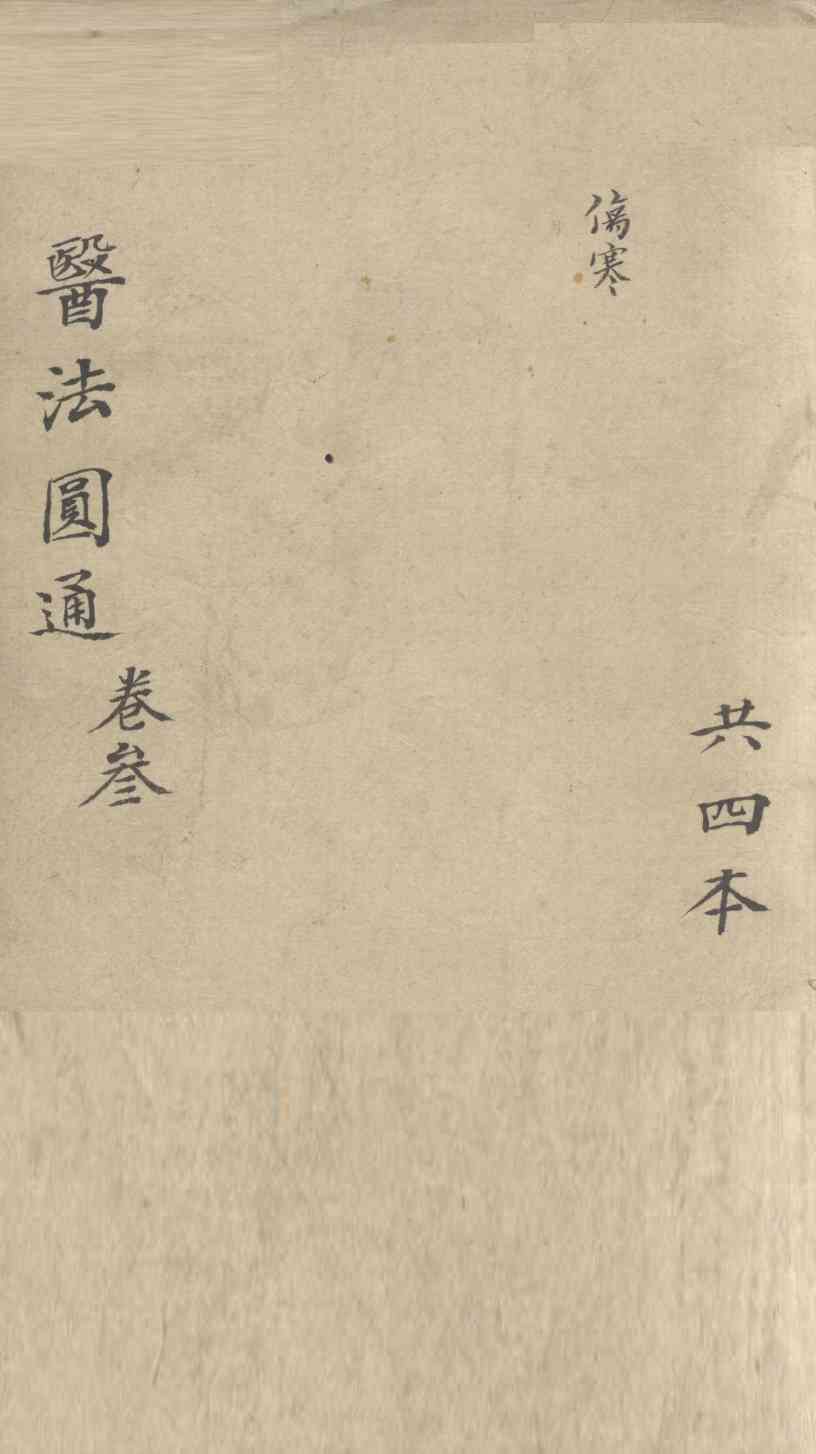 傷寒
共四本
醫法圓通
卷叁